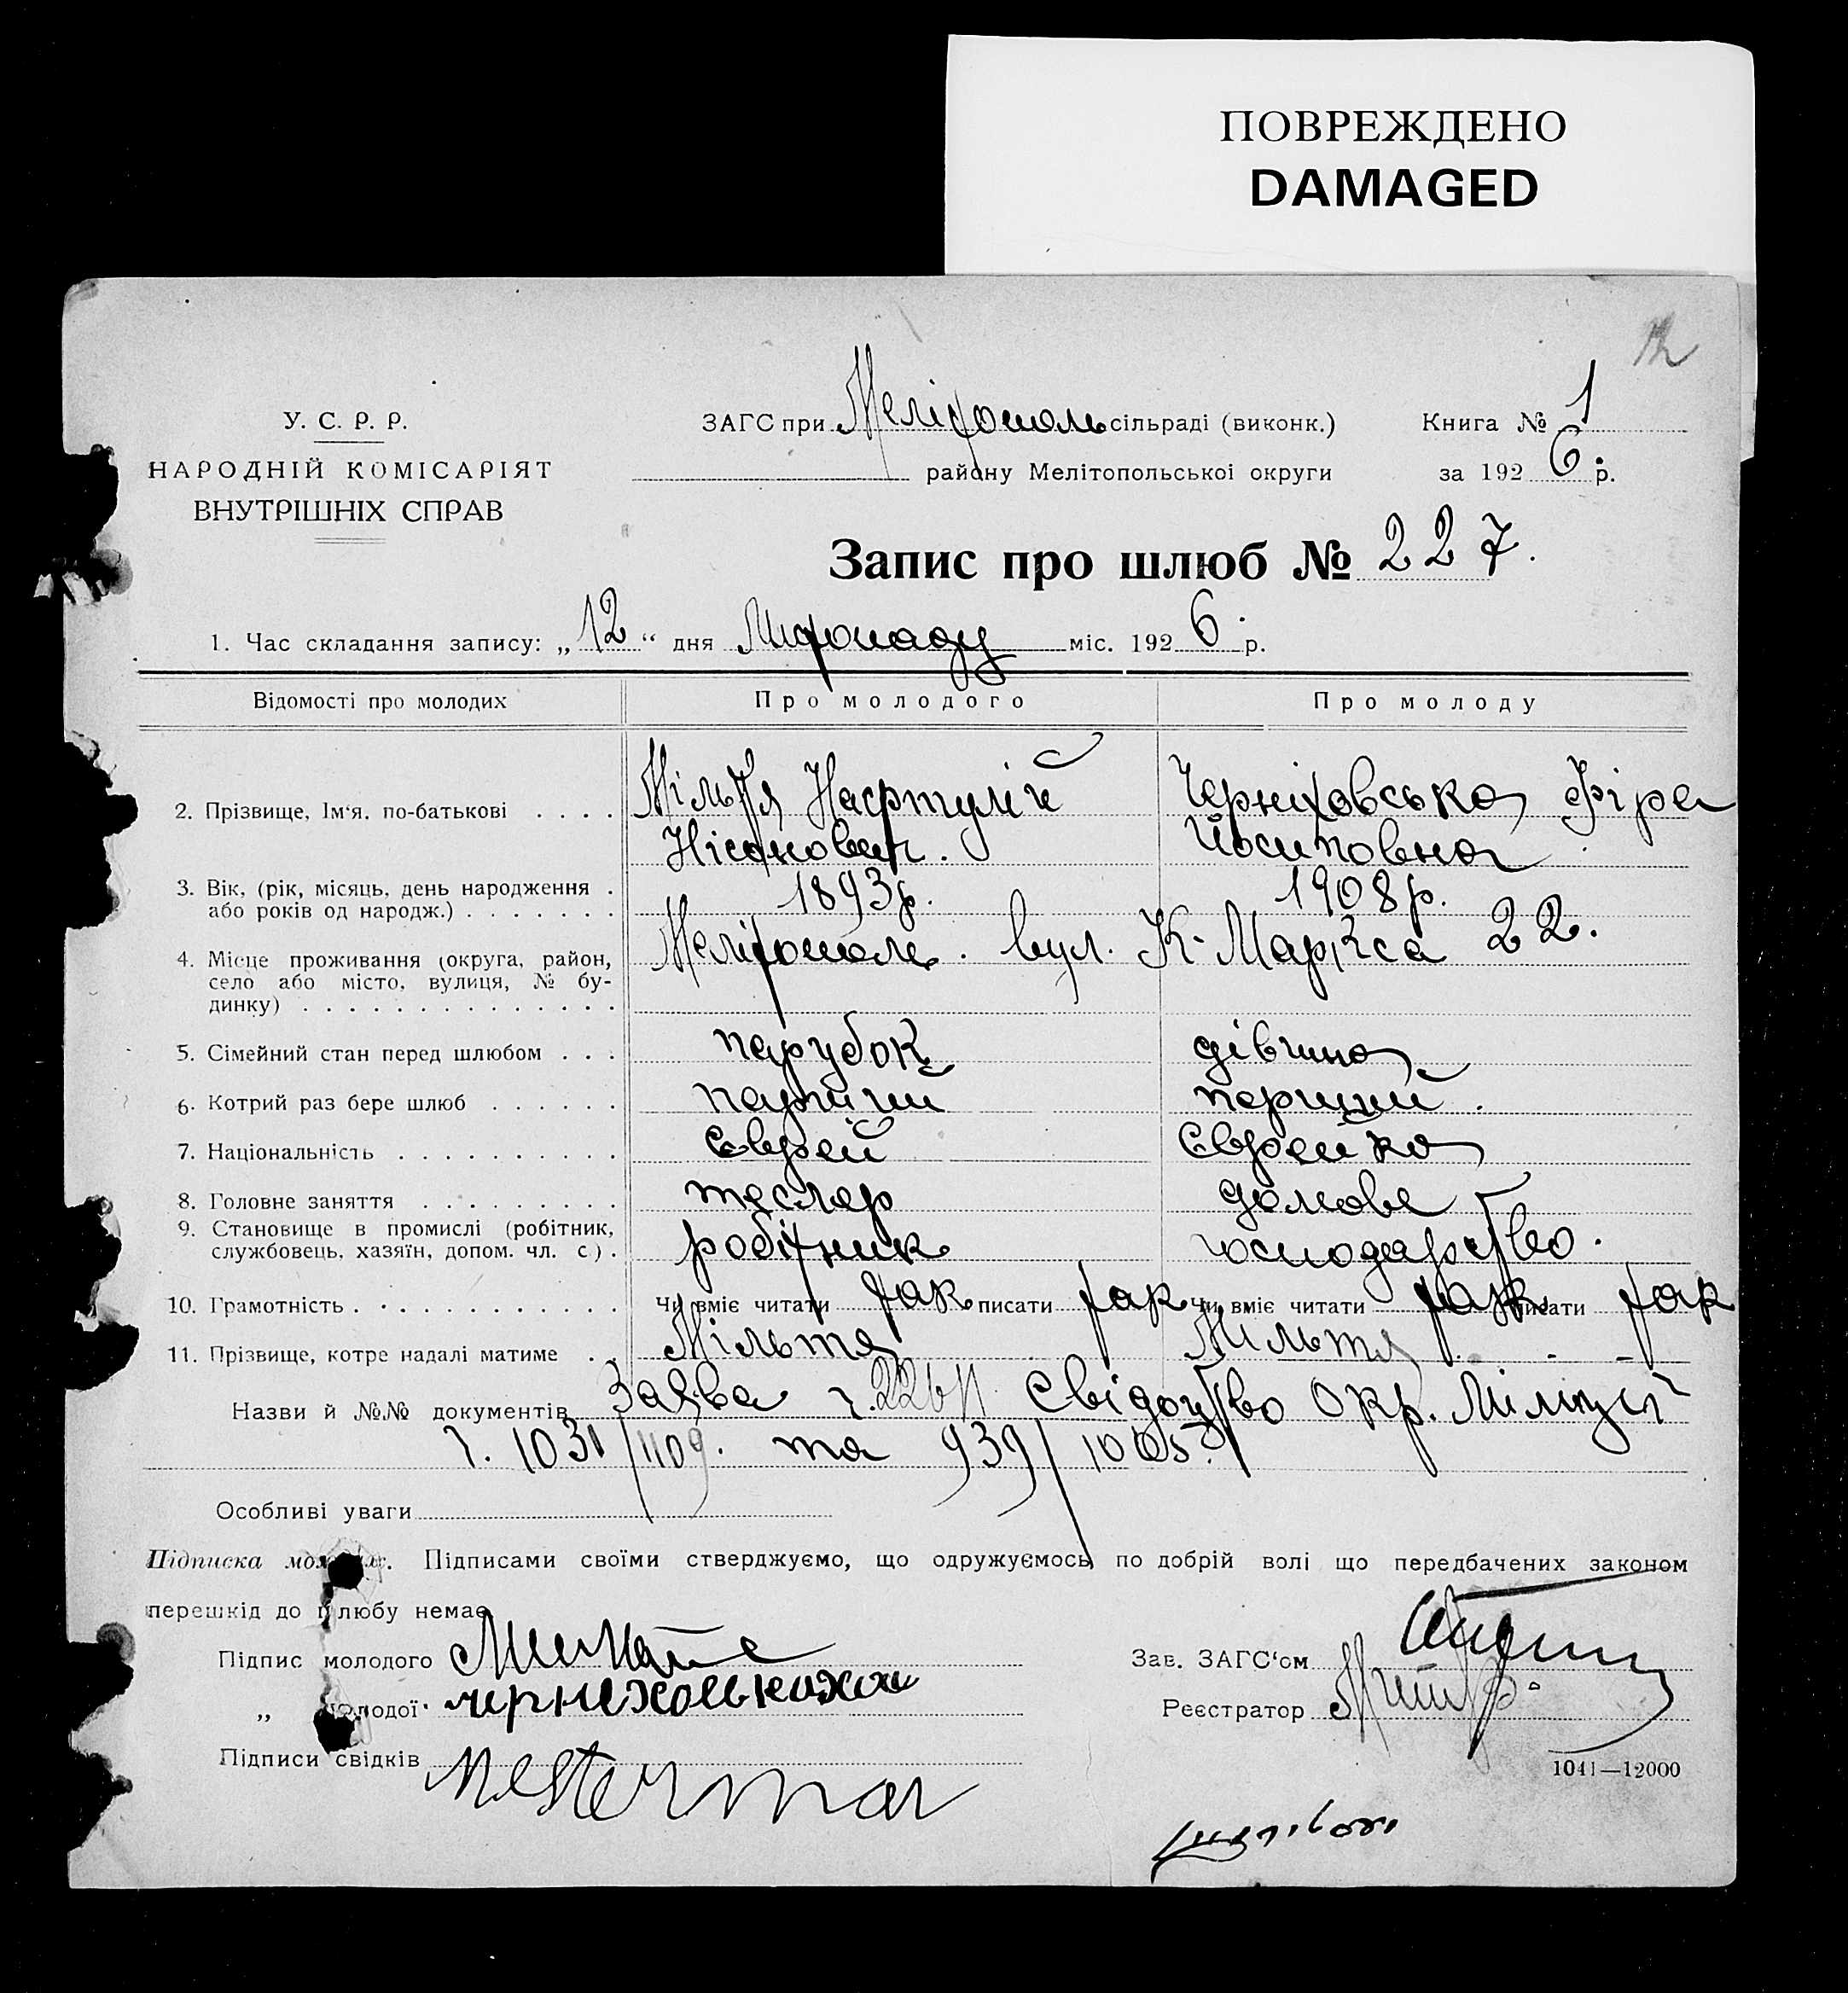 ПОВРЕЖДЕНО
DAMAGED
У. С. Р. Р.
НАРОДНІЙ КОМІСАРІЯТ
ВНУТРІШНІХ СПРАВ
ЗАГС при Мелітополь сільраді (виконк.)
району Мелітопольської округи
Книга № 1
за 1926 р.
Запис про шлюб № 227.
1. Час складання запису: „12“ дня Листопаду міс. 1926 р.
Відомості про молодих Про молодого Про молоду
2. Прізвище, Ім‘я, по-батькові . . . . Мільтя Нафтулій Черніховська Фіра
Нісонович. Йосиповна
3. Вік, (рік, місяць, день народження . 1893р. 1908р.
або років од народж.) . . . . . . .
4. Місце проживання (округа, район, Мелітополь. вул. К. Маркса 22.
село або місто, вулиця, № бу-
динку) . . . . . . . . . . . . . .
5. Сімейний стан перед шлюбом . . . парубок дівчина
6. Котрий раз бере шлюб . . . . . . перший перший.
7. Національність . . . . . . . . . . Єврей Єврейка
8. Головне заняття . . . . . . . . . тесляр домове
9. Становище в промислі (робітник, робітник господарство.
службовець, хазяїн, допом. чл. с.) .
10. Грамотність . . . . . . . . . . . . Чи вміє читати так писати так Чи вміє читати так писати так
11. Прізвище, котре надалі матиме . . Мільтя Мільтя
Назви й №№ документів Заява ч. Свідоцтво Окр. Міліції
ч. 1031/1109. та 939/
Особливі уваги
Підписка молодих. Підписами своїми стверджуємо, що одружуємось по добрій волі що передбачених законом
перешкід до шлюбу немає
Підпис молодого
„ молодої
Підписи свідків
Зав. ЗАГС‘ом
Реєстратор
1041—12000